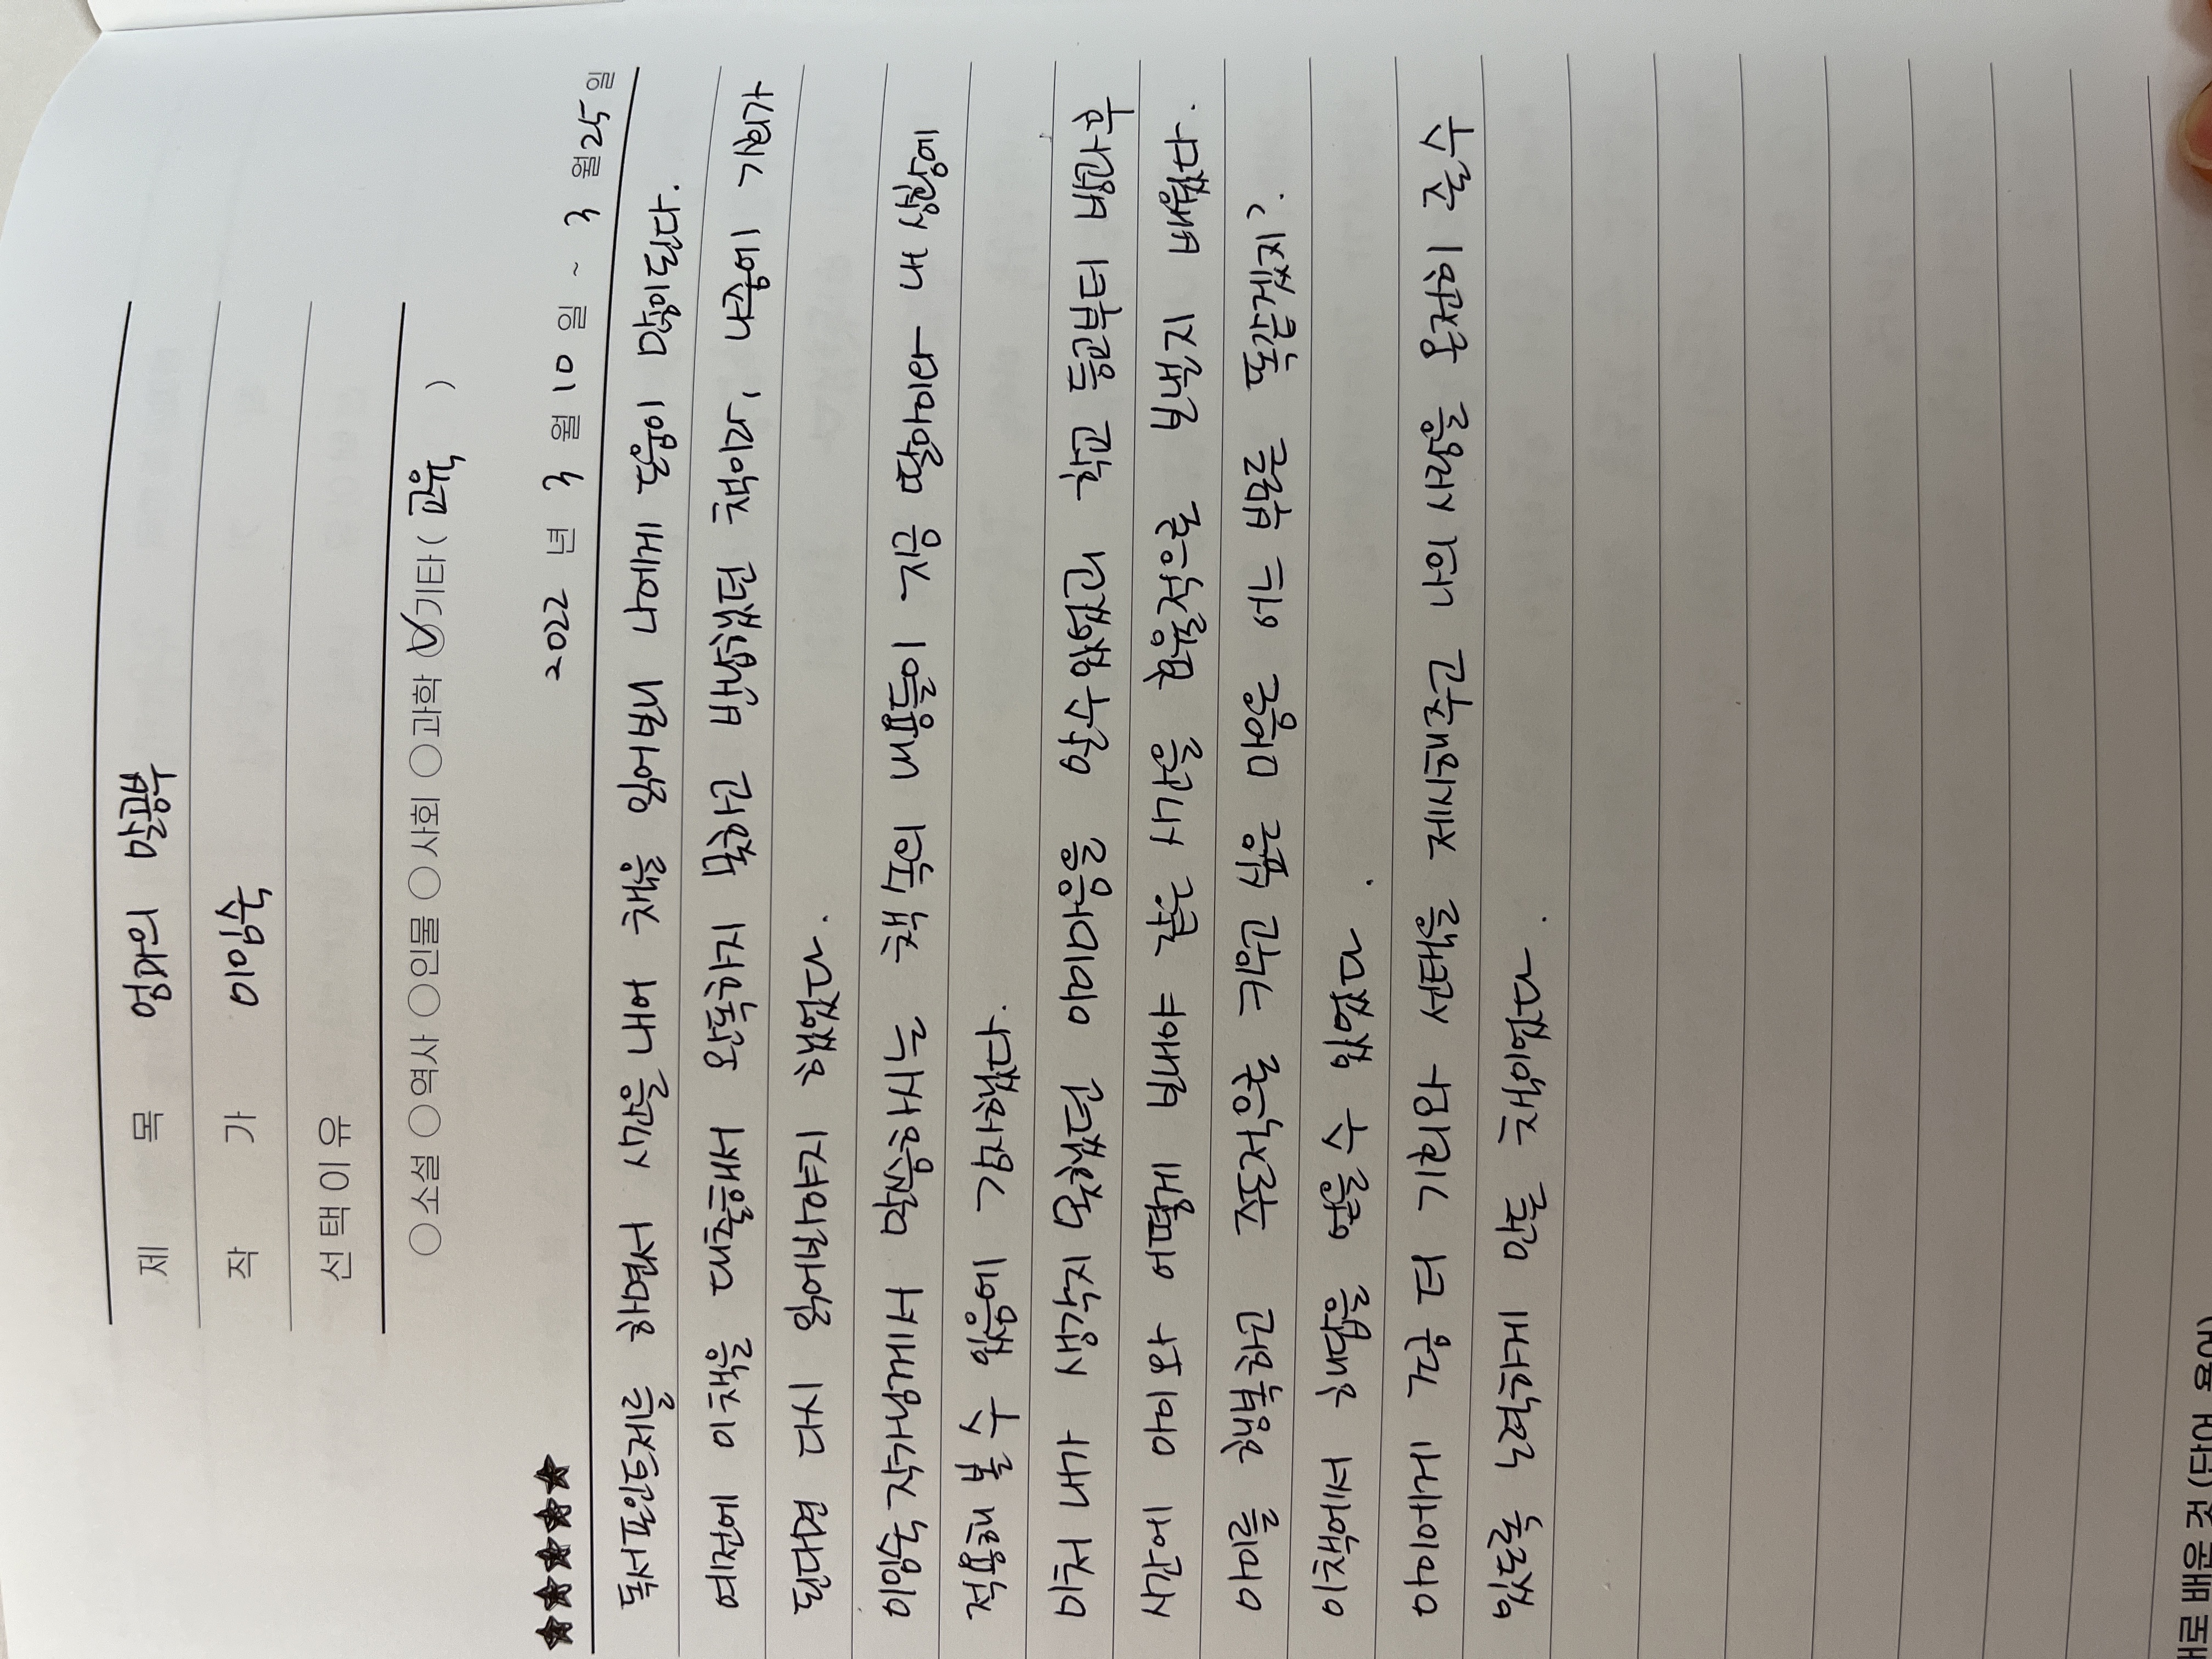 제 목 엄마의 말공부
작 가 이임숙
선택이유
소설 역사 인물 사회 과학 기타 ( 교육 )
★★★★★ 2022 년 3 월 10 일 ~ 3 월 25 일
독서포인트제를 하면서 시간을 내어 책을 읽어보니 나에게 도움이 많이된다.
예전에 이책을 대출해서 완독하지 못하고 반납했던 책이라, 나중에 기회가
된다면 다시 읽어봐야지 했었다.
이임숙 작가님께서 말씀하시는 책 속의 내용들이 지금 딸아이와 내 상황에
적용해 볼 수 있음에 감사했다.
미처 내가 생각지 못했던 아이마음을 알수있었고 학교 등교부터 방과후
시간에 아이와 어떻게 보내야 같은 시간을 효율적으로 보낼지 배웠다.
아이를 행복하고 주도적으로 키우고 싶은 마음은 어느 부모든 똑같겠지?
이책에서 해답을 얻을 수 있었다.
아이에게 조금 더 기회와 선택을 제시해주고 나의 사랑을 온전히 줄 수
있도록 노력하게 만든 책이었다.
배운 것 (단어, 용어)